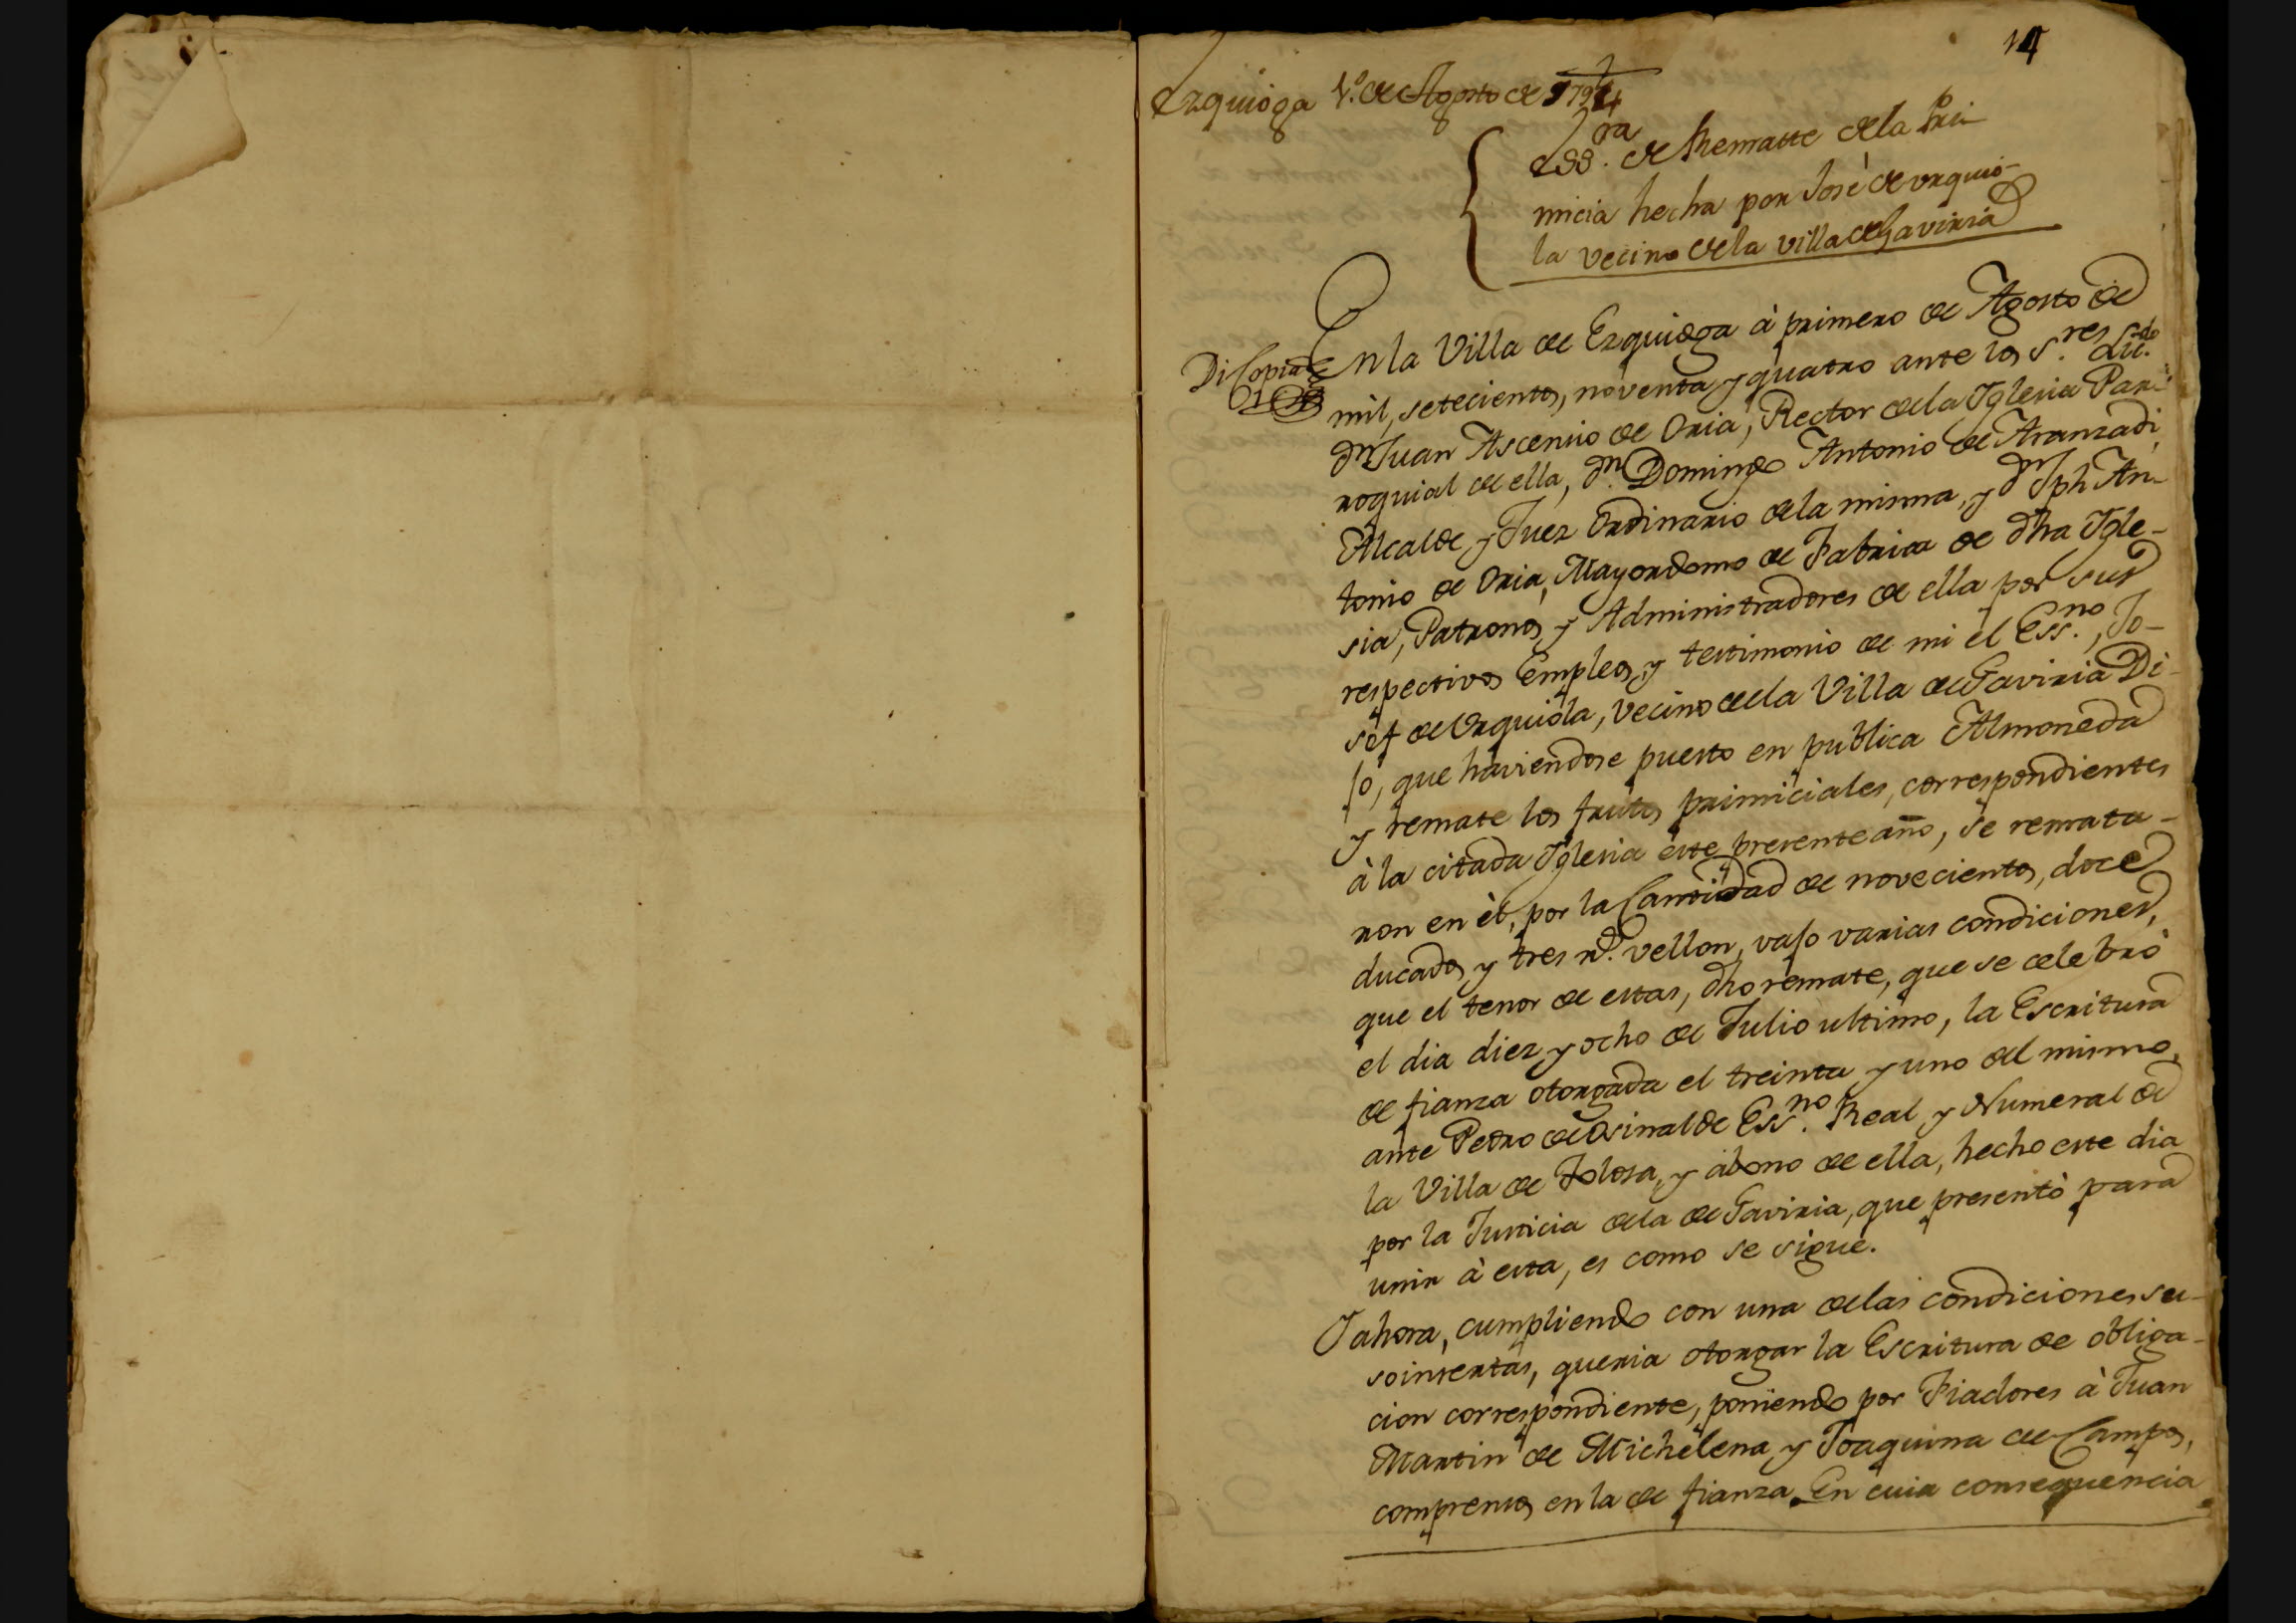 14
Ezquioga 1.º de Agosto de 1794
Ess.ra de Rematte de la Pri-
micia hecha por José de Urquio-
la vecino de la villa de Gaviria
Di Copia
En la Villa de Ezquioga à primero de Agosto de
mil, setecientos, noventa y quatro ante los S.res Lic.do
Dn Juan Ascensio de Oria, Rector de la Iglesia Par-
roquial de ella, Dn. Domingo Antonio de Aranzadi,
Alcalde y Juez Ordinario de la misma, y Dn Jph An-
tonio de Oria, Mayordomo de Fabrica de dha Igle-
sia, Patronos, y Administradores de ella por sus
respectivos Empleos, y testimonio de mi el Ess.no, Jo-
sef de Urquiola, Vecino de la Villa de Gaviria Di-
jo, que haviendose puesto en publica Almoneda
y remate los frutos primiciales, correspondientes
à la citada Iglesia este presente año, se remata-
ron en èl, por la Cantidad de novecientos, doce
ducados, y tres rs. vellon, vajo varias condiciones,
que el tenor de estas, dho remate, que se celebrò
el dia diez y ocho de Julio ultimo, la Escritura
de fianza otorgada el treinta y uno del mismo,
ante Pedro de Osinalde Ess.no Real y Numeral de
la Villa de Tolosa, y abono de ella, hecho este dia
por la Justicia de la de Gaviria, que presentò para
unir à esta, es como se sigue.
Y ahora, cumpliendo con una de las condiciones su-
soinsertas, queria otorgar la Escritura de obliga-
cion correspondiente, poniendo por Fiadores à Juan
Martin de Michelena y Joaquina de Campos,
comprensos en la de fianza. En cuia consequencia